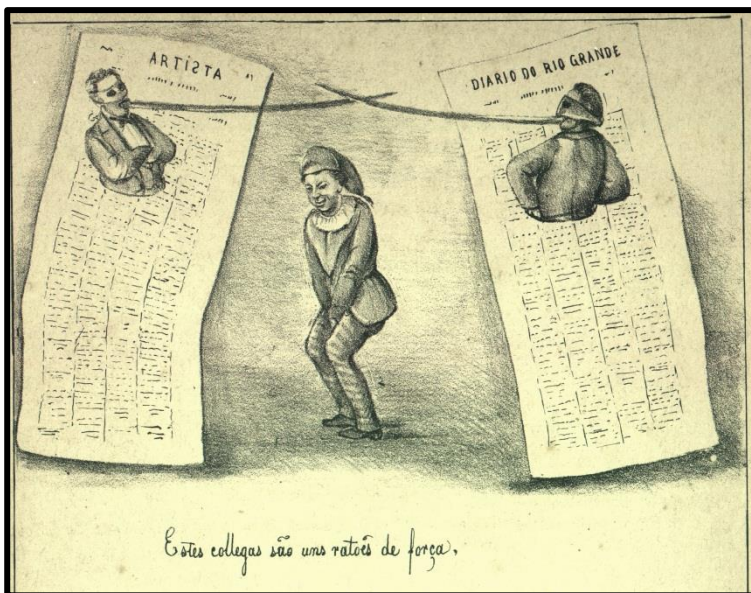 ARTISTA
DIARIO DO RIO GRANDE
Estes collegas são uns ratões de força.